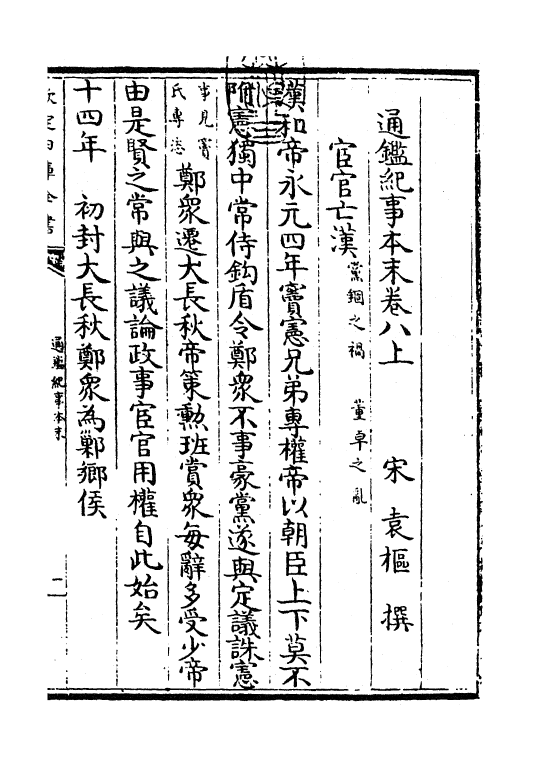 通鑑紀事本末卷八上　宋　袁樞　撰
宦官亡漢黨錮之禍　董卓之亂
漢和帝永元四年竇憲兄弟專權帝以朝臣上下莫不
附憲獨中常侍鈎盾令鄭衆不事豪黨遂與定議誅憲
事見竇氏專恣鄭衆遷大長秋帝策勲班賞衆每辭多受少帝
由是賢之常與之議論政事宦官用權自此始矣
十四年　初封大長秋鄭衆為鄛鄉侯
欽定四庫全書
通鑑紀事本末